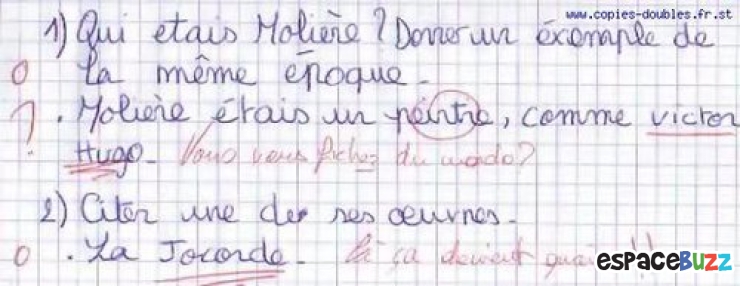 www.copies-doubles.fr.st
1) Qui etais Molière ? Donner un éxemple de
0 la même époque.
? . Molière étais un peintre, comme victor
Hugo. Vous vous fichez du monde?
2) Citer une de ses œuvres.
0 . La Joconde. Là ça devient !!
espaceBuzz